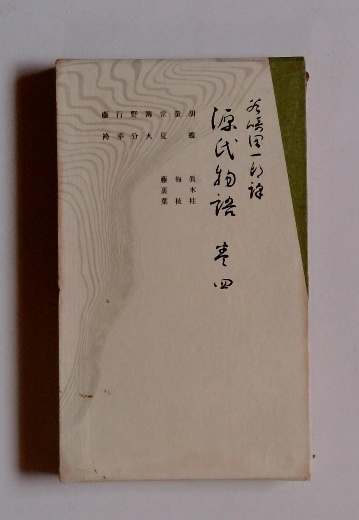 谷崎潤一郎譯
源氏物語 巻四
胡蝶
螢
常夏
篝火
野分
行幸
藤袴
眞木柱
梅枝
藤裏葉